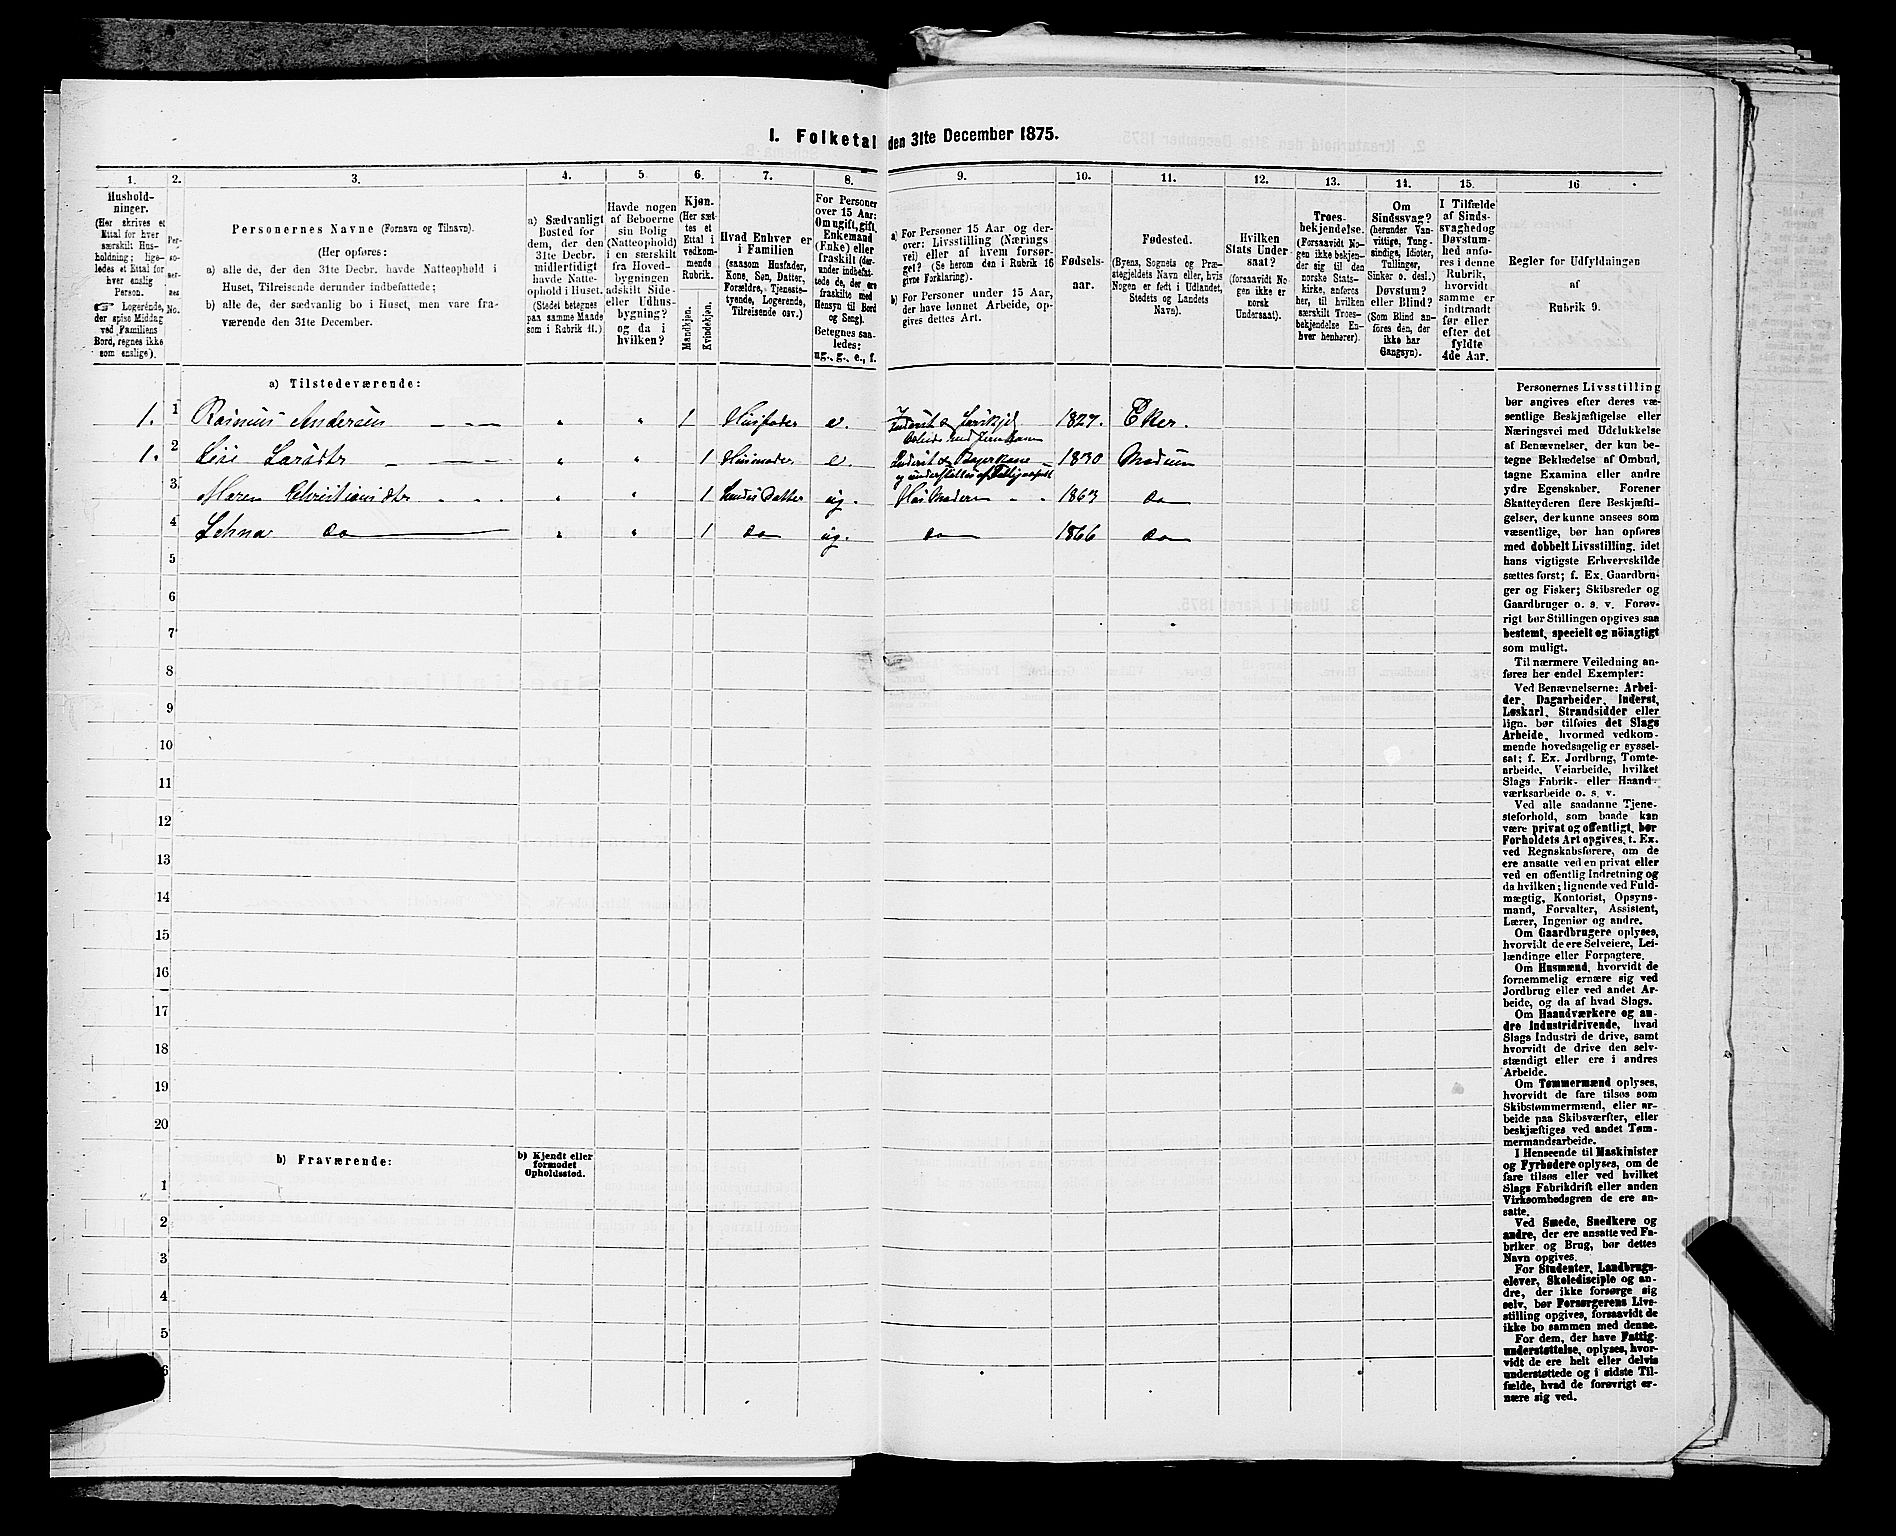 I. Folketal den 31te December 1875.
1.
2.
3.
4.
5.
6.
7.
8.
9.
10.
11.
12.
13.
14.
15.
16
Hushold-
ninger.
(Her skrives et
Ettal for hver
særskilt Hus-
holdning; lige-
ledes et Ettal for
hver enslig
Person.
☞ Logerende,
der spise Middag
ved Familiens
Bord, regnes ikke
som enslige).
Per-
so-
ner-
nes
No.
Personernes Navne (Fornavn og Tilnavn).
(Her opføres:
a) alle de, der den 31te Decbr. havde Natteophold i
Huset, Tilreisende derunder indbefattede;
b) alle de, der sædvanlig bo i Huset, men vare fra-
værende den 31te December.
a) Sædvanligt
Bosted for
dem, der den
31te Decbr.
midlertidigt
havde Natte-
ophold i Huset.
(Stedet betegnes
paa samme Maade
som i Rubrik 11.)
Havde nogen
af Beboerne
sin Bolig
(Natteophold)
i en særskilt
fra Hoved-
bygningen
adskilt Side-
eller Udhus-
bygning?
og da i
hvilken?
Kjøn.
(Her sæt-
tes et
Ettal i
vedkom-
mende
Rubrik.
Mandkjøn.
Kvindekjøn.
Hvad Enhver er
i Familien
(saasom Husfader,
Kone, Søn, Datter,
Forældre, Tjeneste-
tyende, Logerende,
Tilreisende osv.)
For Personer
over 15 Aar:
Om ugift, gift,
Enkemand
(Enke) eller
fraskilt (der-
under indbefat-
tede de, der ere
fraskilte med
Hensyn til Bord
og Seng).
Betegnes saa-
ledes:
ug., g., e., f.
a) For Personer 15 Aar og der-
over: Livsstilling (Nærings-
vei) eller af hvem forsør-
get? (Se herom den i Rubrik 16
givne Forklaring).
b) For Personer under 15 Aar,
der have lønnet Arbeide, op-
gives dettes Art.
Fødsels-
aar.
Fødested.
(Byens, Sognets og Præ-
stegjeldets Navn eller, hvis
Nogen er født i Udlandet,
Stedets og Landets
Navn).
Hvilken
Stats Under-
saat?
(forsaavidt No-
gen ikke er
norsk
Undersaat).
Troes-
bekjendelse.
(Forsaavidt No-
gen ikke bekjen-
der sig til den
norske Stats-
kirke, anføres
her, til hvilken
særskilt Troes-
bekjendelse En-
hver henhører).
Om
Sindssvag?
(herunder Van-
vittige, Tung-
sindige, Idioter,
Tullinger,
Sinker o. desl.)
Døvstum?
eller Blind?
(Som Blind an-
føres den, der
ikke har
Gangsyn).
I Tilfælde
af Sinds-
svaghed og
Døvstum-
hed anfø-
res i denne
Rubrik,
hvorvidt
samme er
indtraadt
før eller
efter det
fyldte
4de Aar.
Regler for Udfyldningen
af
Rubrik 9.
a) Tilstedeværende:
1. 1 Rasmus Andersen „ „ 1 Husfader e. Inderst & 1827. Eker.
Arbeide ved
1. 2 Lise Larsdtr „ „ 1 Husmoder e. Inderst & 1830 Modum
og understøttes af
3 Maren Christiansdtr „ „ 1 Datter ug. Hos Moderen 1863 do
4 Lehna do „ „ 1 do ug. do 1866 do
5
6
7
8
9
10
11
12
13
14
15
16
17
18
19
20
b) Fraværende:
b) Kjendt eller
formodet
Opholdssted.
1
2
3
4
5
6
Personernes Livsstilling
bør angives efter deres væ-
sentlige Beskjæftigelse eller
Næringsvei med Udelukkelse
af Benævnelser, der kun be-
tegne Beklædelse af Ombud,
tagne Examina eller andre
ydre Egenskaber. Forener
Skatteyderen flere Beskjæfti-
gelser, der kunne ansees som
væsentlige, bør han opføres
med dobbelt Livsstilling, idet
hans vigtigste Erhvervskilde
sættes først; f. Ex. Gaardbru-
ger og Fisker; Skibsreder og
Gaardbruger o. s. v. Forøv-
rigt bør Stillingen opgives saa
bestemt, specielt og nöiagtigt
som muligt.
Til nærmere Veiledning an-
føres her endel Exempler:
Ved Benævnelserne: Arbei-
der, Dagarbeider, Inderst,
Løskarl, Strandsidder eller
lign. bør tilføies det Slags
Arbeide, hvormed vedkom-
mende hovedsagelig er syssel-
sat; f. Ex. Jordbrug, Tomte-
arbeide, Veiarbeide, hvilket
Slags Fabrik- eller Haand-
værksarbeide o. s. v.
Ved alle saadanne Tjene-
steforhold, som baade kan
være privat og offentligt, bør
Forholdets Art opgives, t. Ex.
ved Regnskabsførere, om de
ere ansatte ved en privat eller
ved en offentlig Indretning og
da hvilken; lignende ved Fuld-
mægtig, Kontorist, Opsyns-
mand, Forvalter, Assistent,
Lærer, Ingeniør og andre.
Om Gaardbrugere oplyses,
hvorvidt de ere Selveiere, Lei-
lændinge eller Forpagtere.
Om Husmænd, hvorvidt de
fornemmelig ernære sig ved
Jordbrug eller ved andet Ar-
beide, og da af hvad Slags.
Om Haandværkere og an-
dre Industridrivende, hvad
Slags Industri de drive, samt
hvorvidt de drive den selv-
stændigt eller ere i andres
Arbeide.
Om Tømmermænd oplyses,
hvorvidt de fare tilsøs som
Skibstømmermænd, eller ar-
beide paa Skibsværfter, eller
beskjæftiges ved andet Tøm-
mermandsarbeide.
I Henseende til Maskinister
og Fyrbødere oplyses, om de
fare tilsøs eller ved hvilket
Slags Fabrikdrift eller anden
Virksomhedsgren de ere an-
satte.
Ved Smede, Snedkere og
andre, der ere ansatte ved Fa-
briker og Brug, bør dettes
Navn opgives.
For Studenter, Landbrugs-
elever, Skoledisciple og an-
dre, der ikke forsørge sig
selv, bør Forsørgerens Livs-
stilling opgives, forsaavidt de
ikke bo sammen med denne.
For dem, der have Fattig-
understøttelse, oplyses, hvor-
vidt de ere helt eller delvis
understøttede og i sidste Til-
fælde, hvad de forøvrigt er-
nære sig ved.